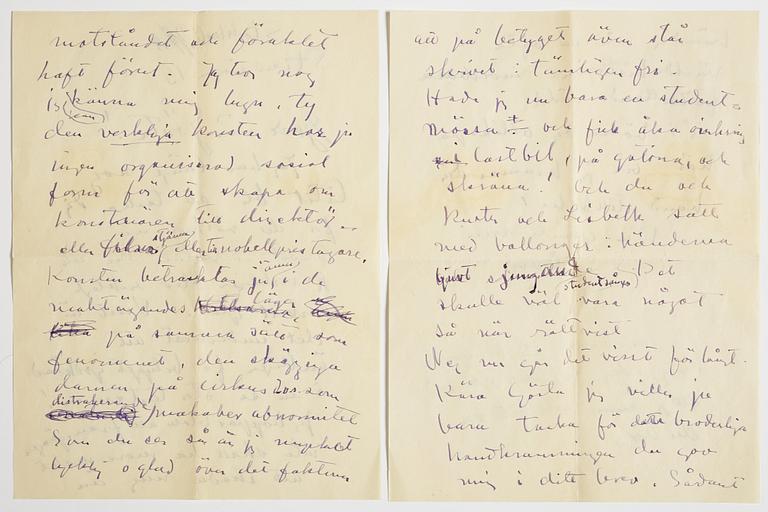 motståndet och föraktet
haft förut. Jag tror nog
jag kan känna mig lugn, ty
den verkliga konsten har ju
ingen organiserad social
form för att skapa om
konstnären till direktör
eller stjärna eller nobelpristagare.
Konsten betraktas ju ännu i de
maktägandes läger
på samma sätt som
fenomenet, den skäggiga
damen på cirkus som
distraherande makaber abnormitet
Som du ser så är jag mycket
lycklig o glad över det faktum
att på betyget även står
skrivet: tämligen fri.
Hade jag nu bara en student-
mössa och fick åka omkring
lastbil, på gatorna, och
skråla! och du och
Kurt och Lisbeth satt
med ballonger i händerna
sjungande studentsånger. Det
skulle väl vara något
så när rättvist
Nej nu går det visst för långt.
Kära Gösta jag ville ju
bara tacka för den broderliga
handkramningen du gav
mig i ditt brev. Sådant